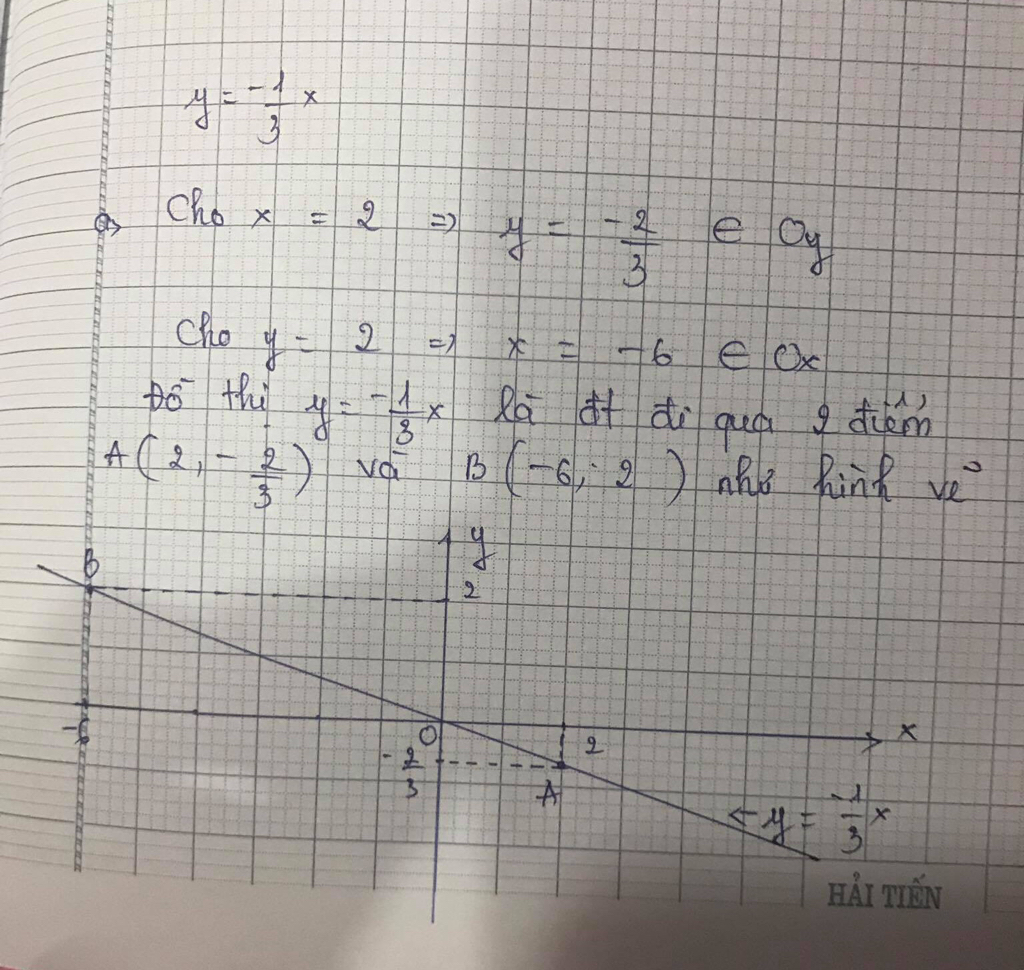 y = -1/3 x
Cho x = 2 => y = -2/3 ∈ Oy
Cho y = 2 => x = -6 ∈ Ox
Đồ thị y = -1/3 x là đt đi qua 2 điểm
A(2, -2/3) và B(-6; 2) như hình vẽ
y
B
2
O
2
x
-6
-2/3
A
← y = -1/3 x
HẢI TIẾN